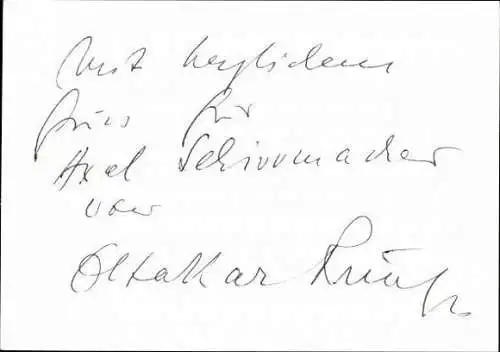 Mit herzlichem
Gruss für
Axel Schirrmacher
von
Ottokar Runze